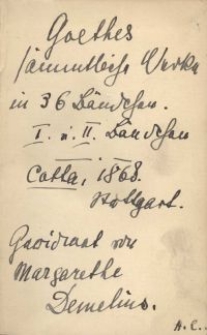 Goethes
sämmtliche Werke
in 36 Bändchen.
I. u. II. Bändchen
Cotta, 1868.
Stuttgart.
Gewidmet von
Margarethe
Demelius.
H. C.